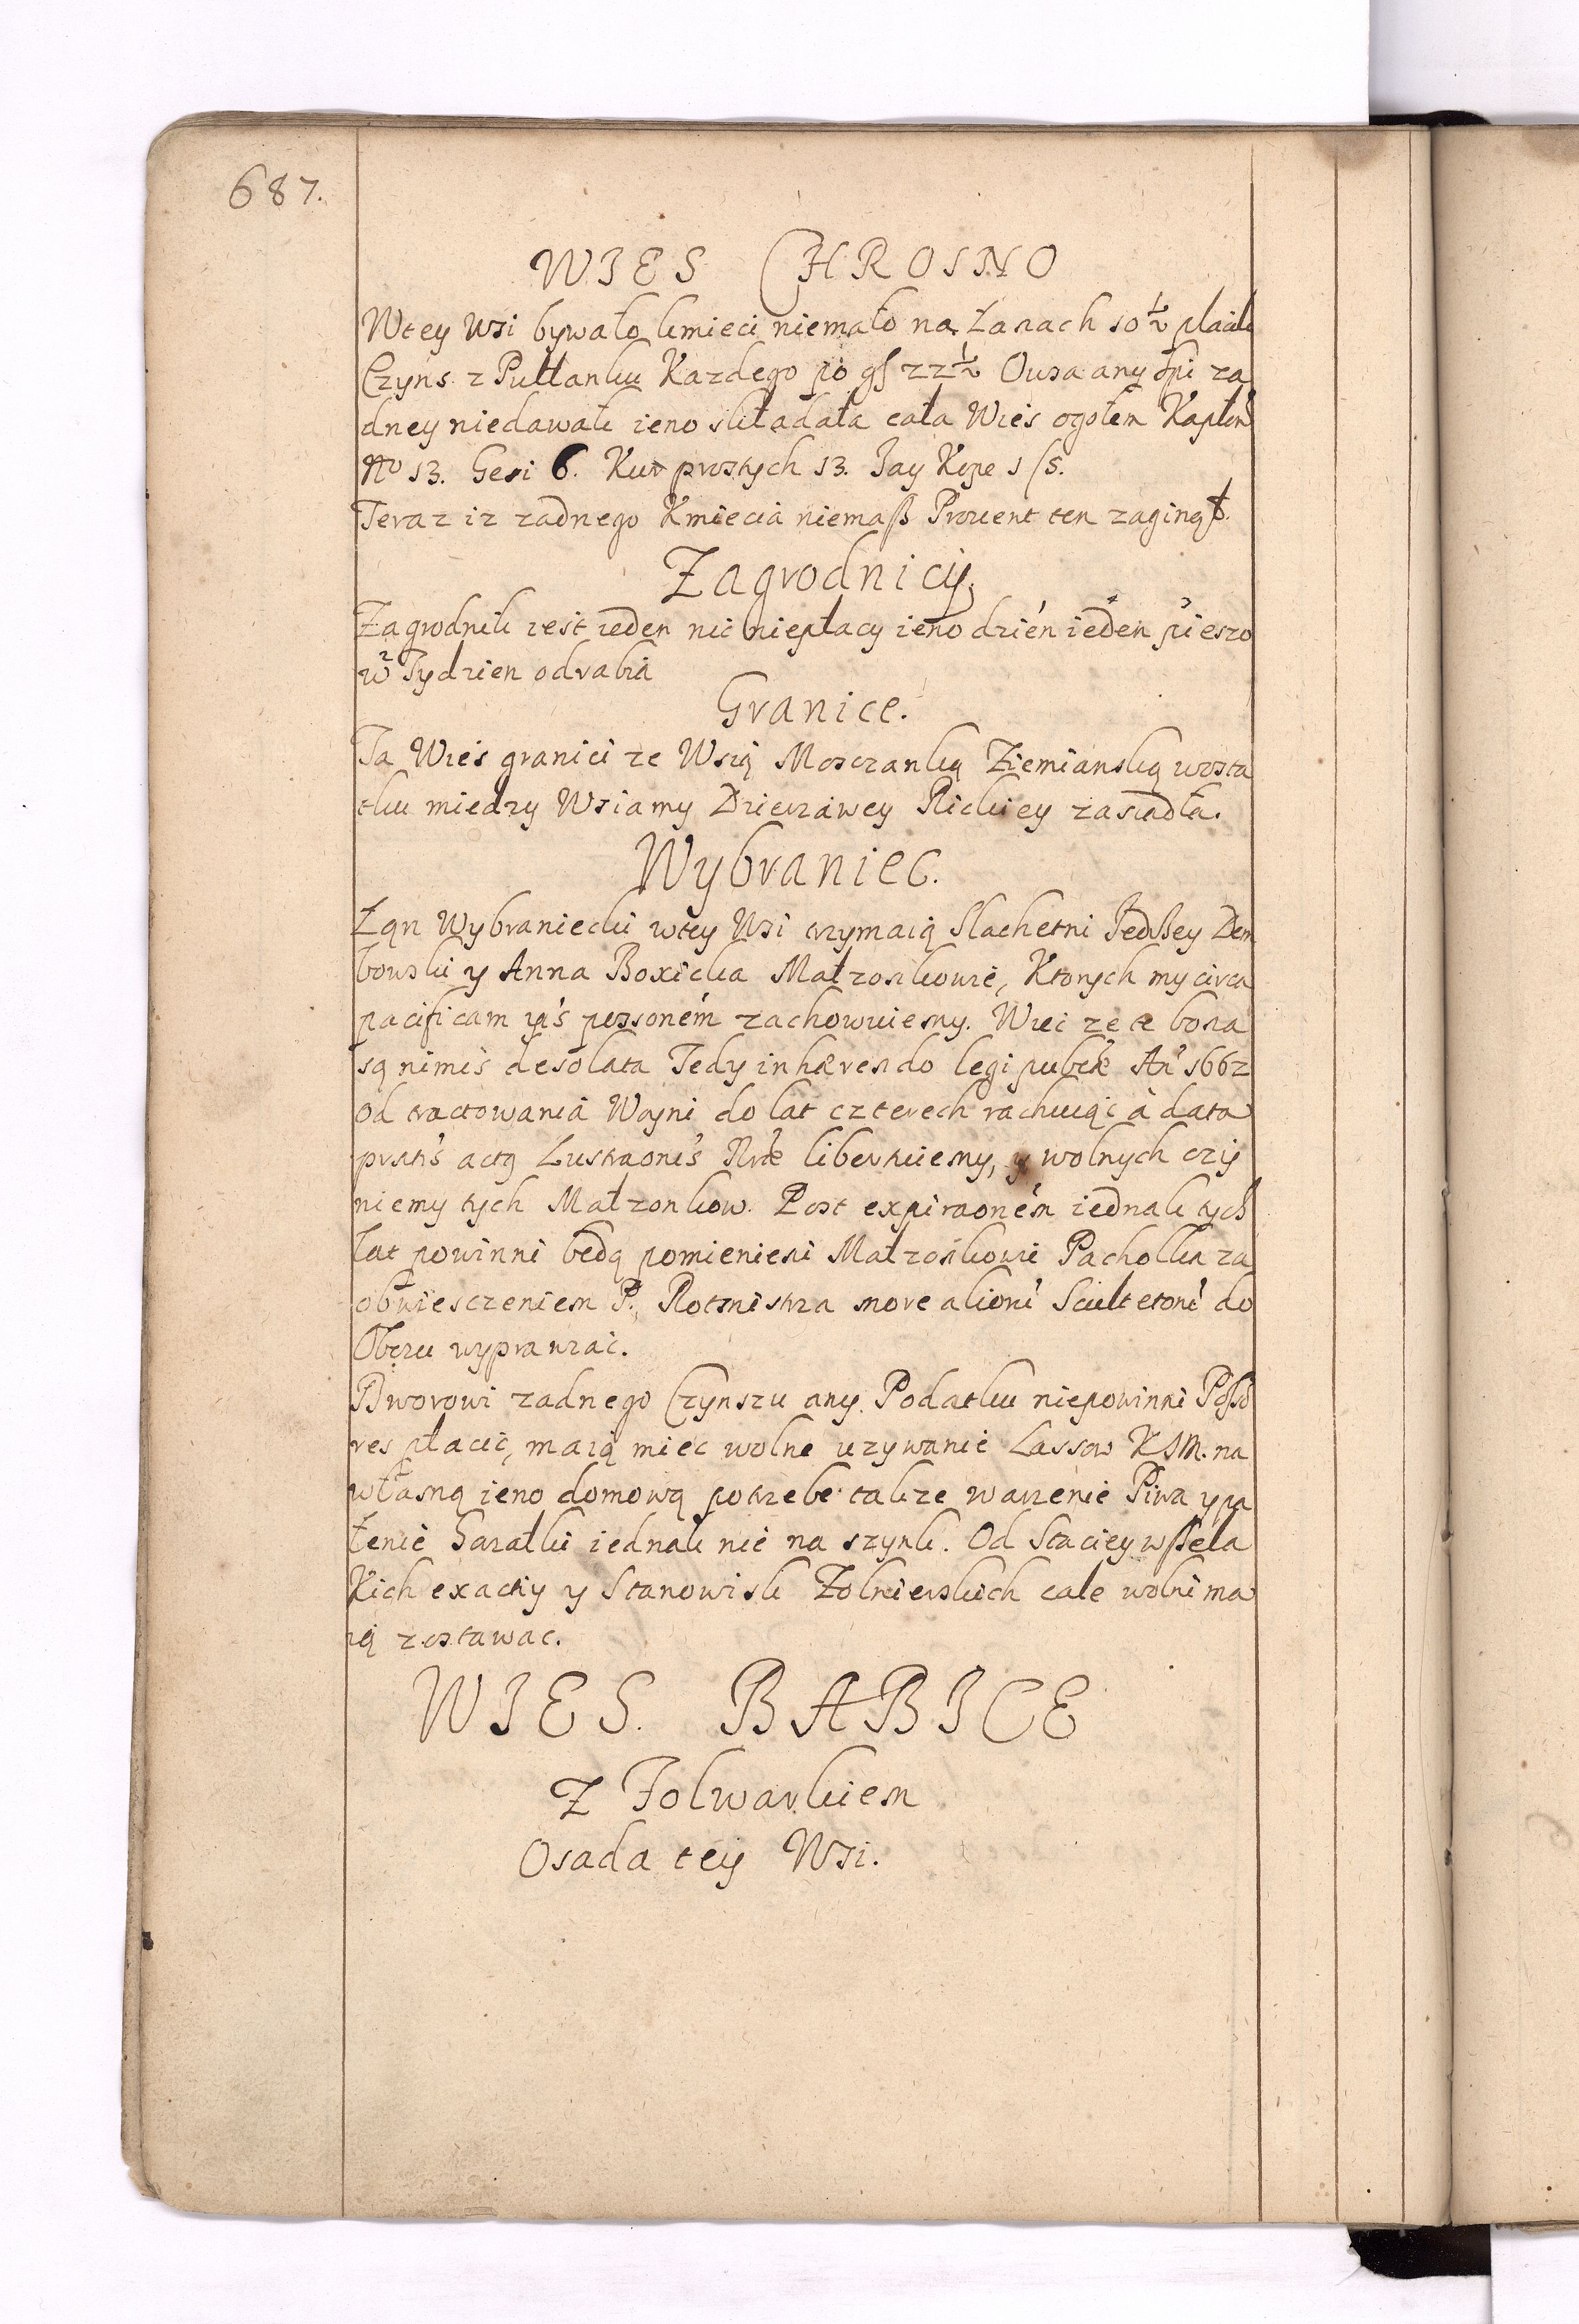 687.
WIES CHROSNO
Wtey Wsi bywało kmieci niemało na Łanach 10 ½ płacili
Czyns z Pułłanku Kazdego po gſ 22 ½ Owsa any ża
dney niedawali ieno składała cała Wieś ogołem Kapłon
No 13. Gesi 6. Kur prostych 13. Jay Kope 1
Teraz iz zadnego Kmiecia niemaß Prowent ten zaginął.
Zagrodnicy.
Zagrodnik iest ieden nic niepłacy ieno dzień ieden pieszo
w Tydzien odrabia
Granice.
Ta Wieś granici ze Wsią Mosczanką Ziemianską wosta
tku miedzy Wsiamy Dzierzawey Rickiey zasiadła.
Wybraniec.
Łąn Wybraniecki wtey Wsi trzymaią Slachetni Jędßey Dem
bowski y Anna Boxicka Małzonkowie, Ktorych my circa
pacificam poſsoném zachowuiemy. Wiec ze te bona
są nimis desolata Tedy inhærendo legi publæ An 1662
od tractowania Woyni do lat czterech rachuiąc à data
prsńs actą Lustraonis Nræ libertuiemy, y wolnych czy
niemy tych Małzonkow. Post expiraoném iednak tych
lat powinni będą pomienieni Małzonkowie Pachołka za
obwiesczeniem P. Rotmistrza more alioru Scultetoru do
Obozu wyprawiać.
Dworowi zadnego Czynszu any Podatku niepowinni Poſso
res płacić, maią miec wolne uzywanie Lassow KJM. na
własną ieno domową potrzebe takze warzenie Piwa y pa
lenie Gorzałki iednak nie na szynk. Od Staciey wßela
Kich exactiy y Stanowisk Zołnierskich cale wolni ma
ią zostawac.
WIES. BABICE
Z Folwarkiem
Osada tey Wsi.